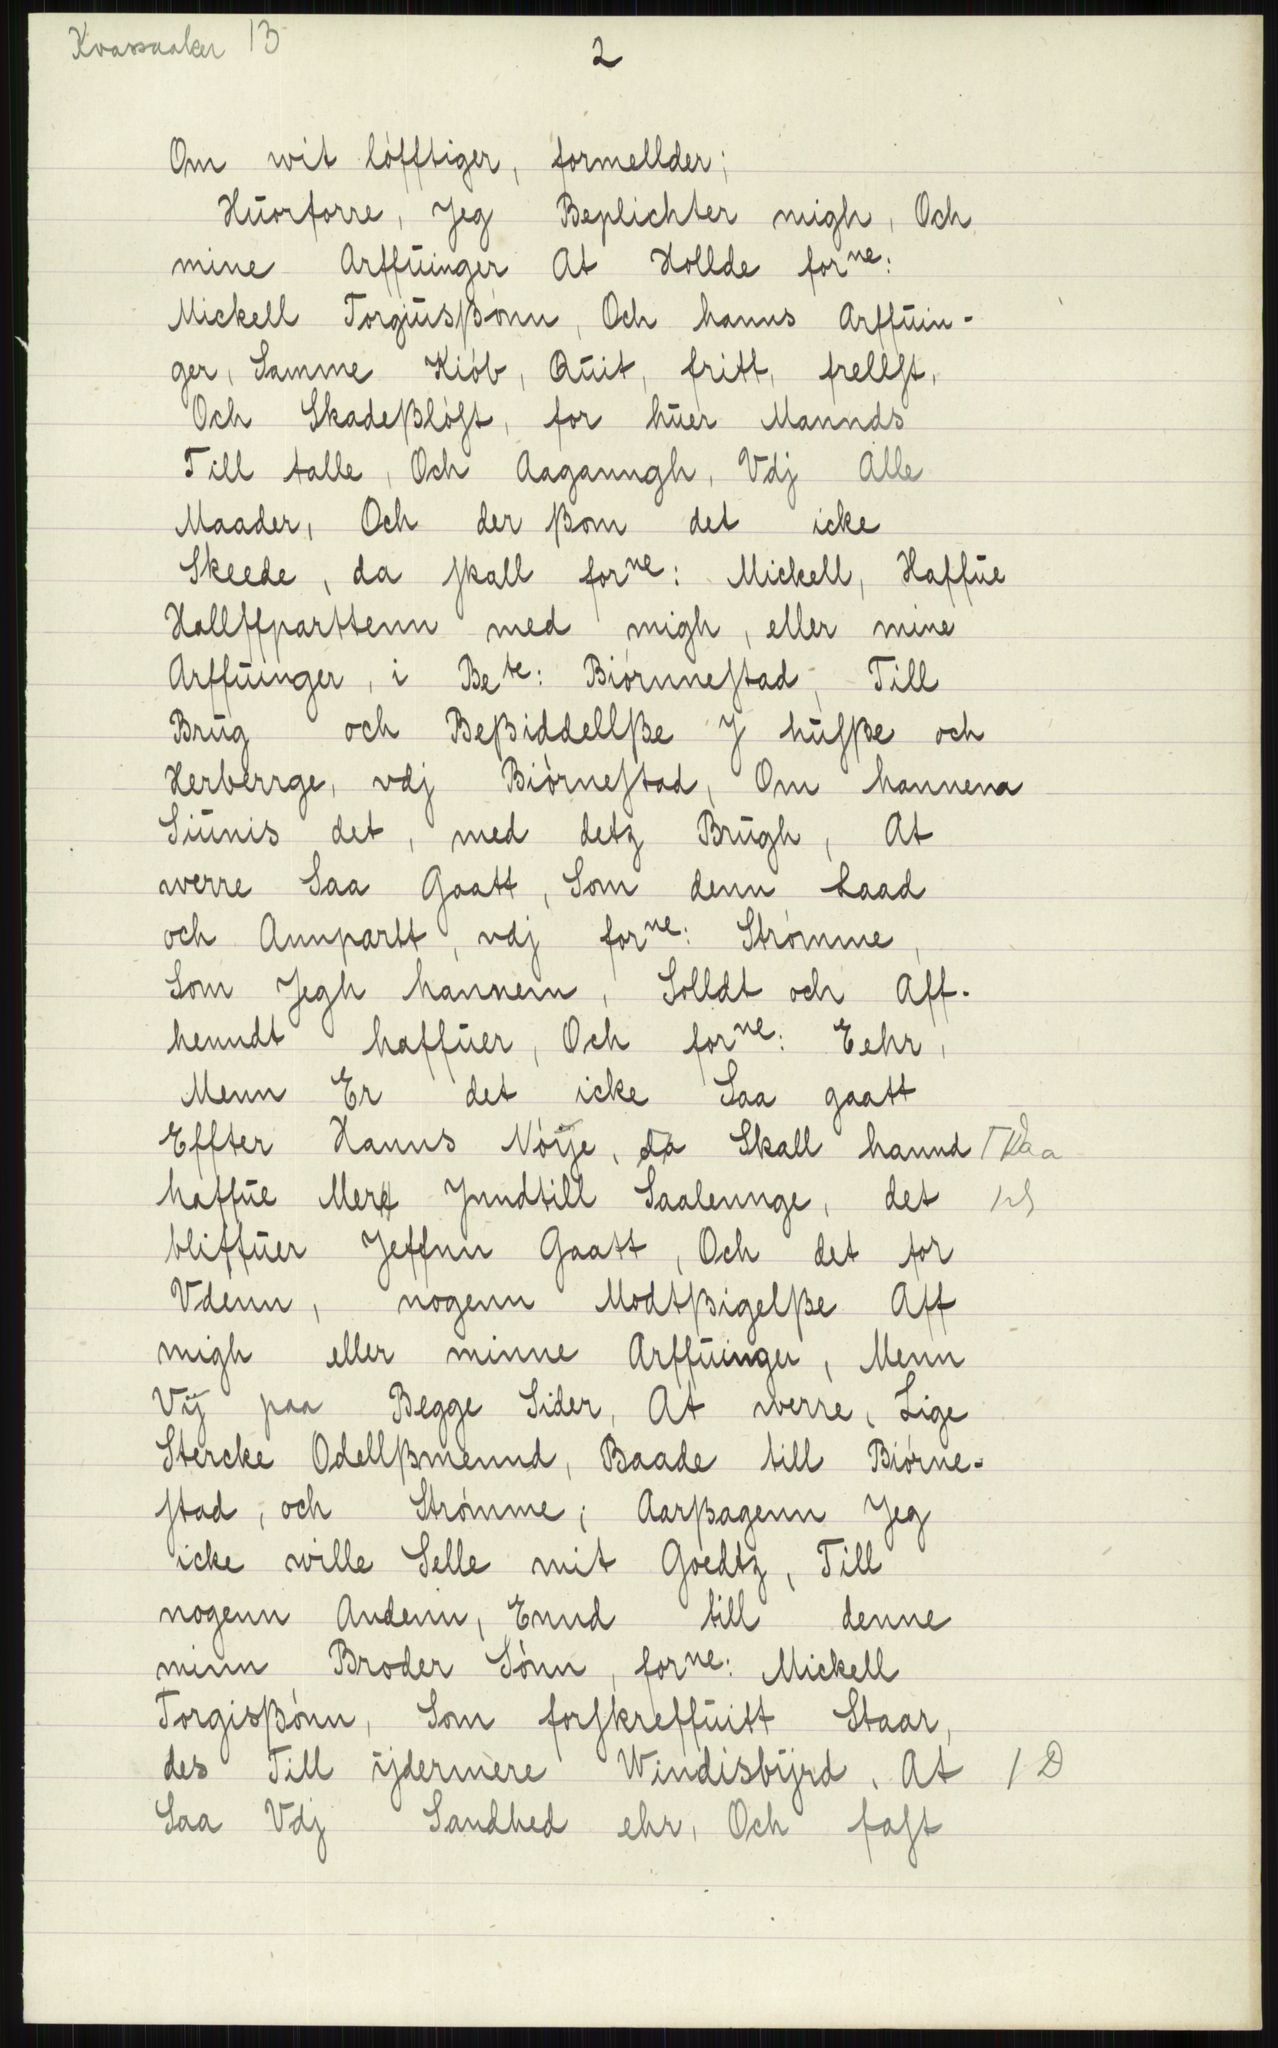 Kvassaaker 13
2
Om wit løfftiger, formellder;
Huorforre, Jeg Beplichter migh, Och
mine Arffuinger At Hollde forne:
Mickell Torgiusßønn, Och hanns Arffuin-
ger, Samme Kiøb, Quit, fritt, frellst,
Och Skadeßløst, for huer Mannds
Till talle, Och Aaganngh, Vdj Alle
Maader, Och der ßom det icke
Skeede, da skall forne: Mickell, Haffue
Hallffparttenn med migh, eller mine
Arffuinger, i Bete: Biørnnestad, Till
Brug och Beßiddellße J husße och
Herberrge, vdj Biørnestad, Om hannem
Siunis det, med detz Brugh, At
werre Saa Gaatt, Som denn Laad
och Annpartt, vdj forne: Strømme,
Som Jegh hannem, Solldt och Aff-
henndt haffuer, Och forne: Eehr,
Menn Er det icke Saa gaatt
Effter Hanns Nøije, da Skall hannd ⌈Daa
haffue Mere Jnndtill Saalennge, det
bliffuer Jeffnn Gaatt, Och det for
Vdenn, nogenn Modtßigelße Aff
migh eller minne Arffuinger, Menn
Vij paa Begge Sider, At werre, Lige
Stercke Odellßmennd, Baade till Biørne-
stad, och Strømme; Aarßagenn Jeg
icke wille Selle mit Goedtz, Till
nogenn Andenn, Ennd till denne
minn Broder Sønn, forne: Mickell
Torgisßønn, Som forskreffuitt Staar,
des Till ijdermere Windisbijrd, At / D
Saa Vdj Sandhed ehr, Och fast